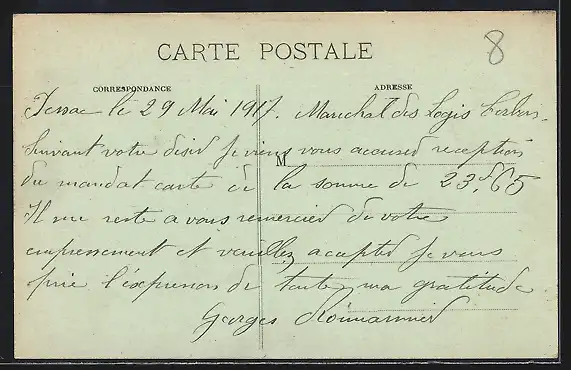 8
CARTE POSTALE
CORRESPONDANCE
ADRESSE
Pessac le 29 Mai 1917. Marechal des Logis
Suivant votre désir je viens vous accuser reception
M
du mandat carte de la somme de 23f,65
Il me reste a vous remercier de votre
empressement et veuillez accepter je vous
prie l'expression de toute ma gratitude
Georges